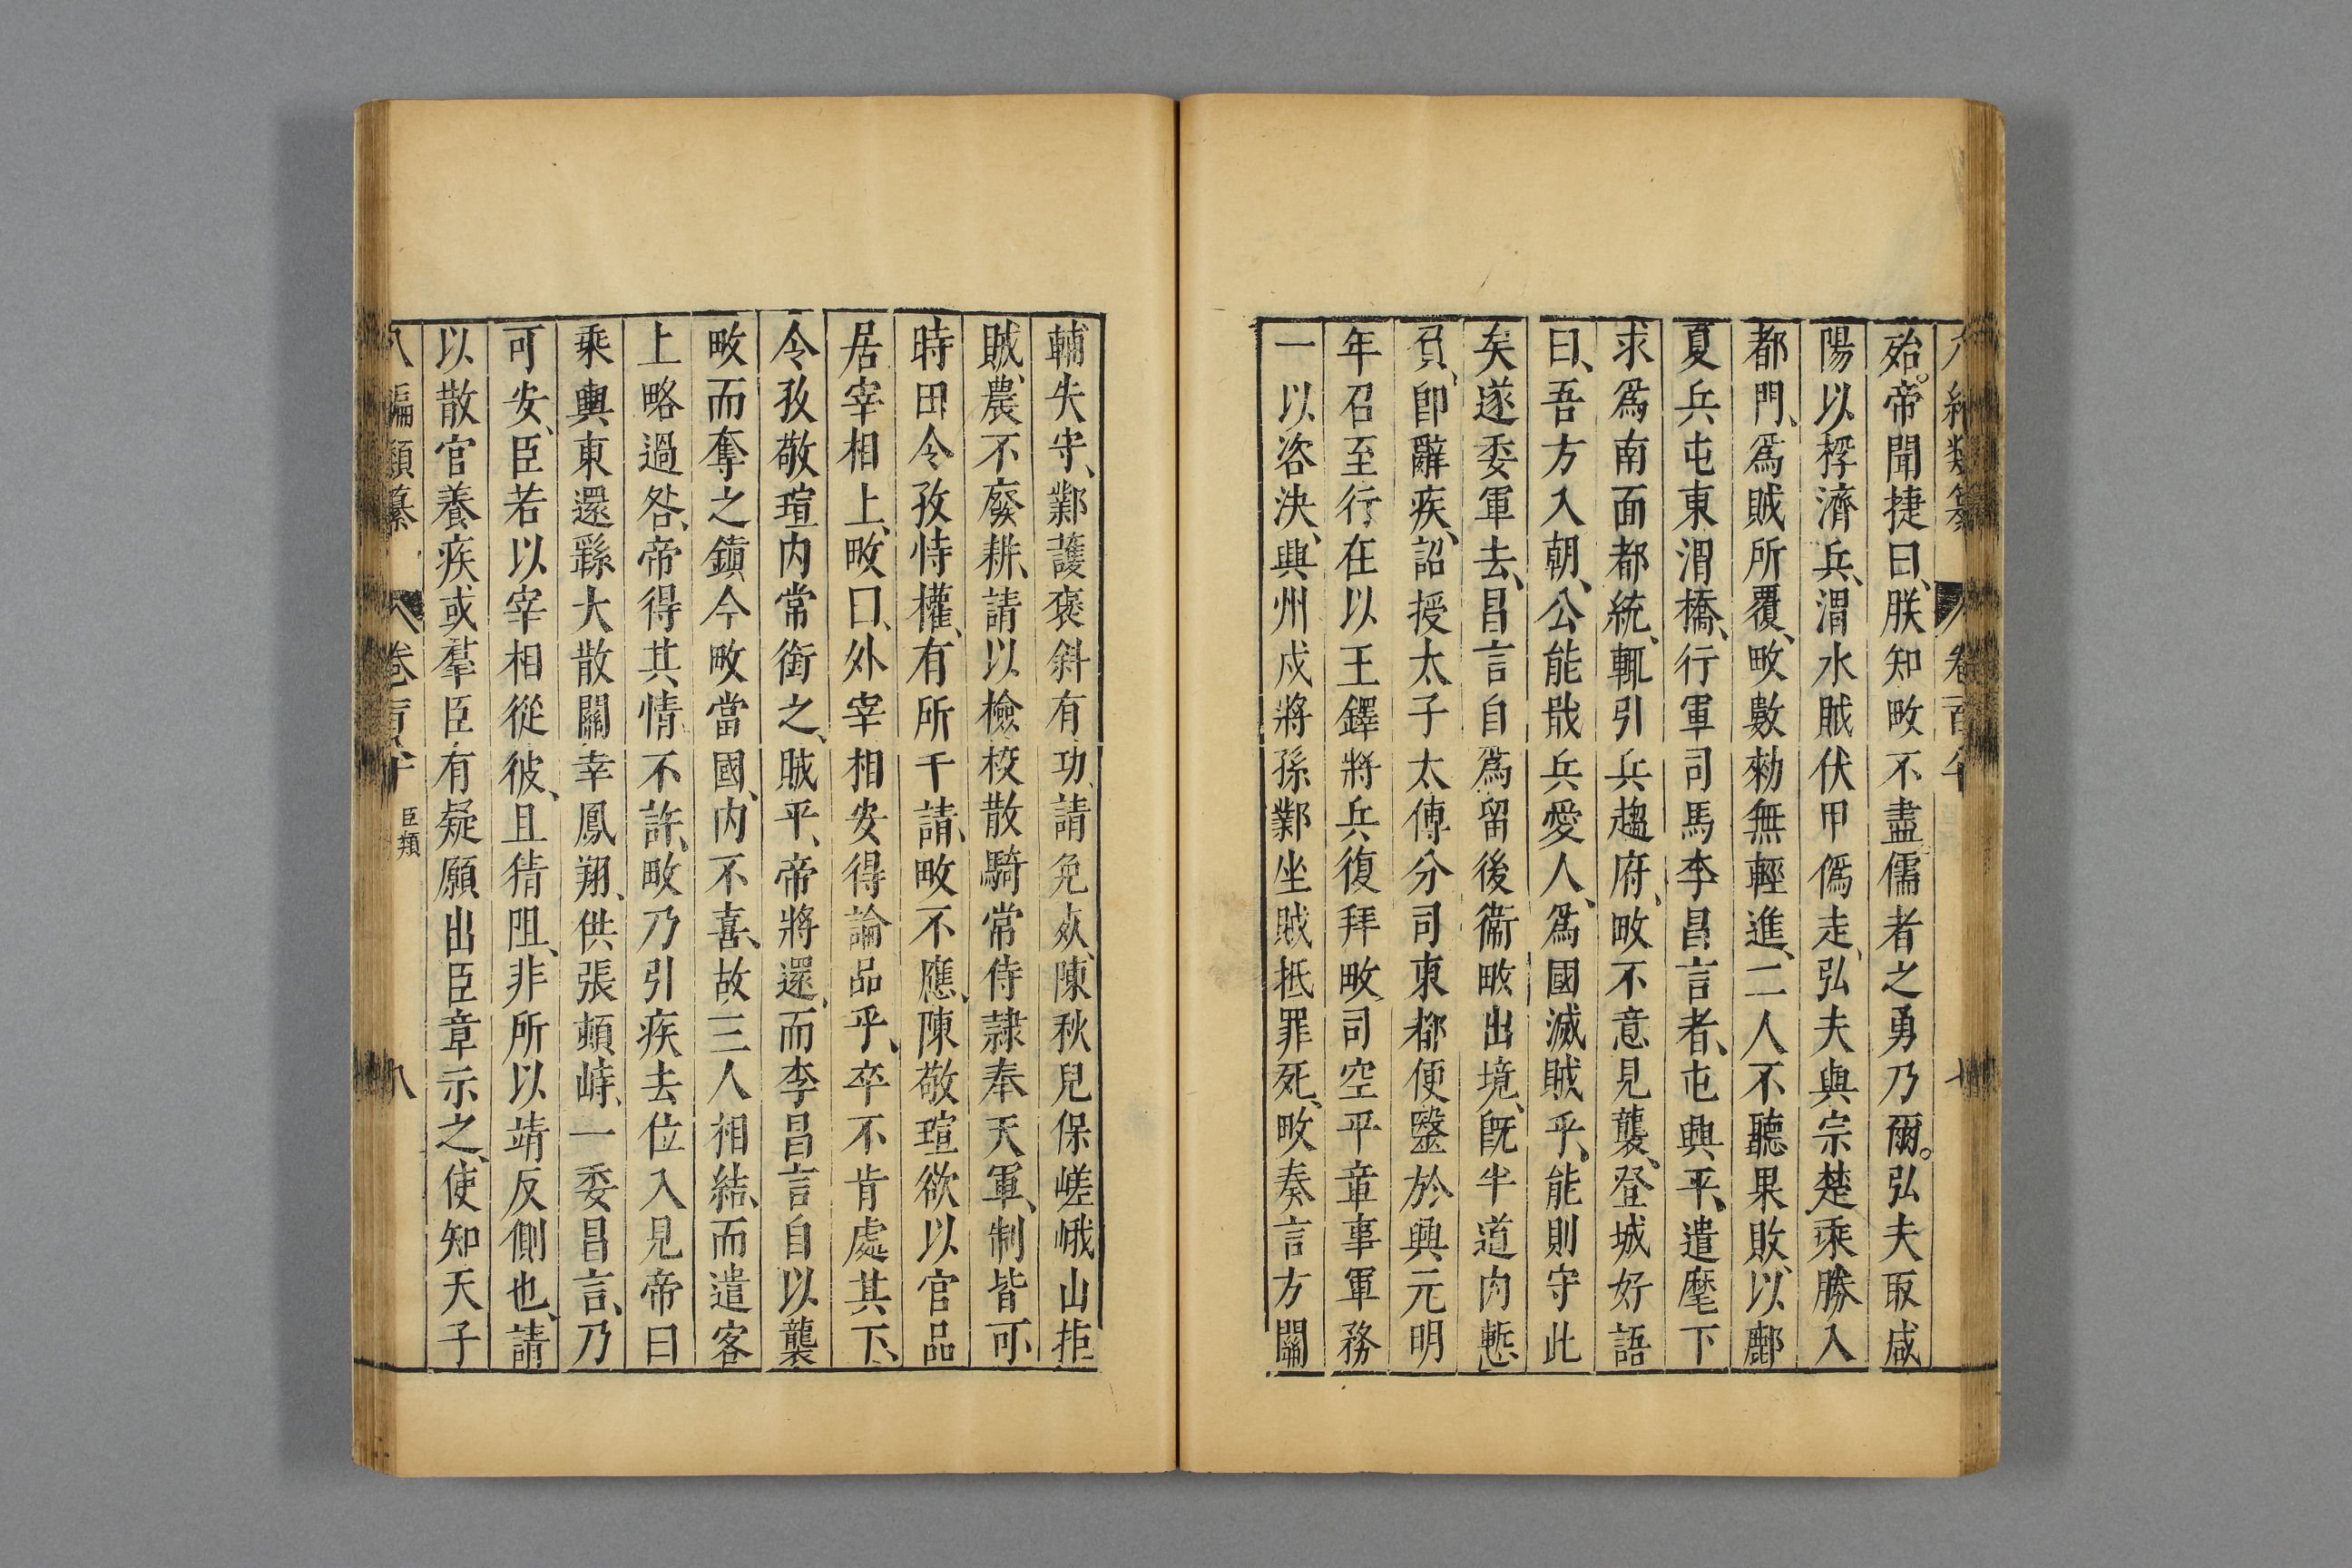 殆。帝聞捷曰、朕知畋不盡儒者之勇乃爾。弘夫取咸
陽以桴濟兵、渭水賊伏甲僞走、弘夫與宗楚乘勝入
都門、爲賊所覆、畋數勑無輕進、二人不聽果敗、以鄜
夏兵屯東渭橋、行軍司馬李昌言者、屯興平、遣麾下
求爲南面都統、輒引兵趨府、畋不意見襲、登城好語
曰、吾方入朝、公能戢兵愛人、爲國滅賊乎、能則守此
矣遂委軍去、昌言自爲留後衞畋出境、旣半道內慙
負、卽辭疾、詔授太子太傅分司東都便醫於興元明
年召至行在以王鐸將兵復拜畋司空平章事軍務
一以咨決、興州戍將孫鄴坐賊抵罪死、畋奏言方關
輔失守、鄴護褒斜有功、請免死、陳秋兒保嵯峨山拒
賊、農不廢耕、請以檢校散騎常侍隷奉天軍、制皆可、
時田令孜恃權、有所干請、畋不應、陳敬瑄欲以官品
居宰相上、畋曰、外宰相安得論品乎、卒不肯處其下、
令孜敬瑄內常銜之、賊平、帝將還、而李昌言自以襲
畋而奪之鎭今畋當國、內不喜、故三人相結、而遣客
上略過咎、帝得其情不許、畋乃引疾去位入見帝曰
乘輿東還繇大散關幸鳳翔、供張頓峙、一委昌言、乃
可安、臣若以宰相從彼、且猜阻、非所以靖反側也、請
以散官養疾或羣臣有疑願出臣章示之、使知天子
八編類纂 卷百 臣類 八